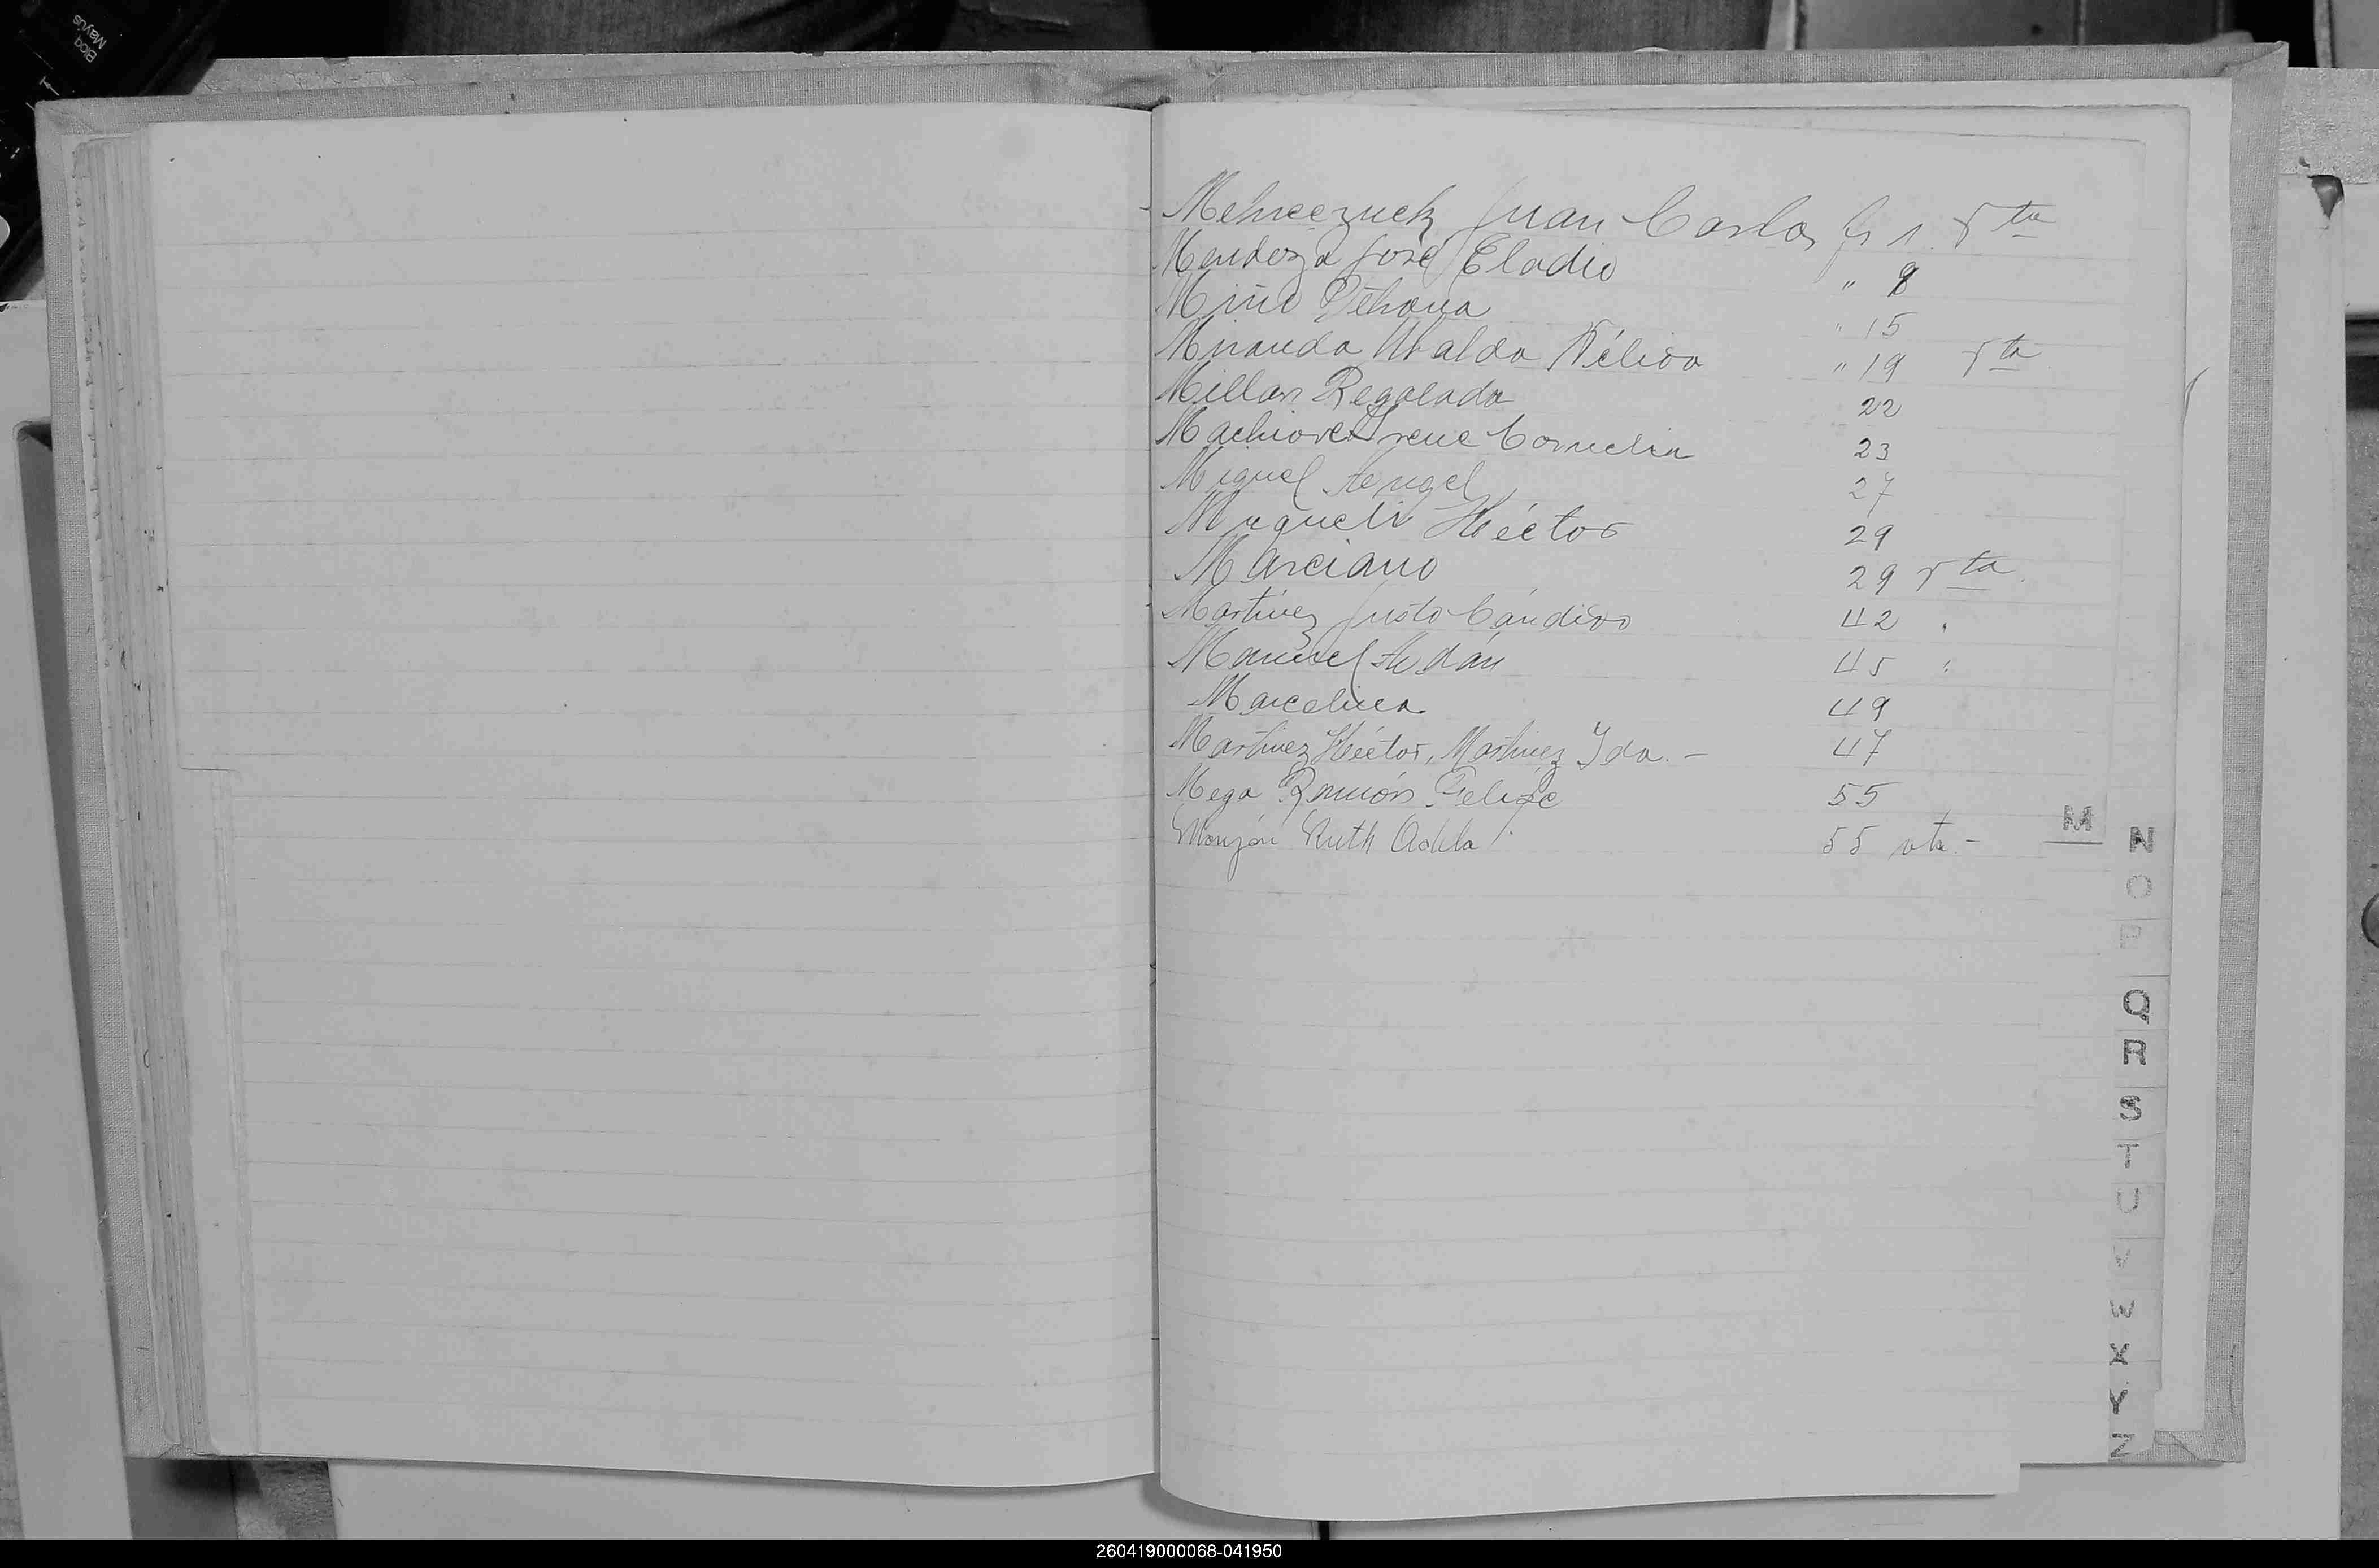 Bloq
Mayús
Juan Carlos fs 1. vta
Mendoza José Eladio " 8
Miño Ythona " 15
Miranda Ubalda Nélida " 19 vta
Millan Regalada 22
Irene Cornelia 23
Miguel Angel 27
Héctor 29
Marciano 29 vta.
Martínez Justo Cándido 42 "
Manuel Adán 45 "
Marcelina 49
Martinez Héctor, Martinez Ida. - 47
Mega Ramón Felipe 55
Monzón Ruth Adela 55 vta.-
M
N
O
P
Q
R
S
T
U
V
W
X
Y
Z
260419000068-041950